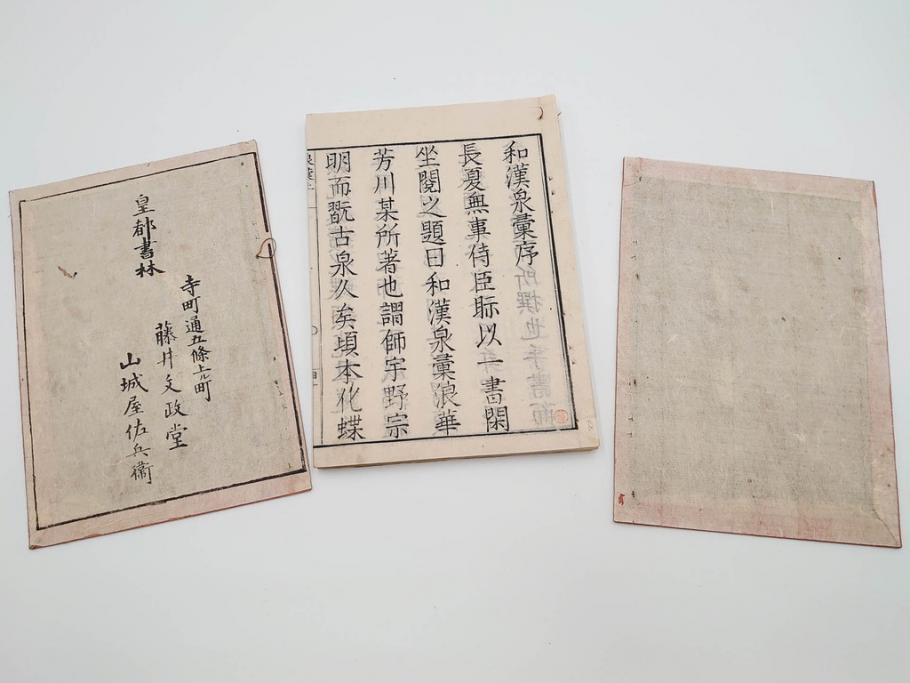 皇都書林
寺町通五條上ル町
藤井文政堂
山城屋佐兵衛
和漢泉彙序
長夏無事侍臣眎以一書閑
坐閲之題曰和漢泉彙浪華
芳川某所著也謂師宇野宗
明而翫古泉久矣頃本化蝶